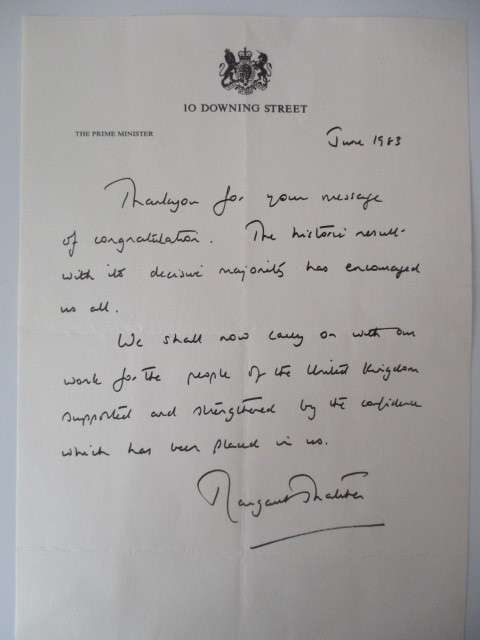 10 DOWNING STREET
THE PRIME MINISTER
June 1983
Thankyou for your message
of congratulation. The historic result
with its decisive majority has encouraged
us all.
We shall now carry on with our
work for the people of the United Kingdom
supported and strengthened by the confidence
which has been placed in us.
Margaret Thatcher